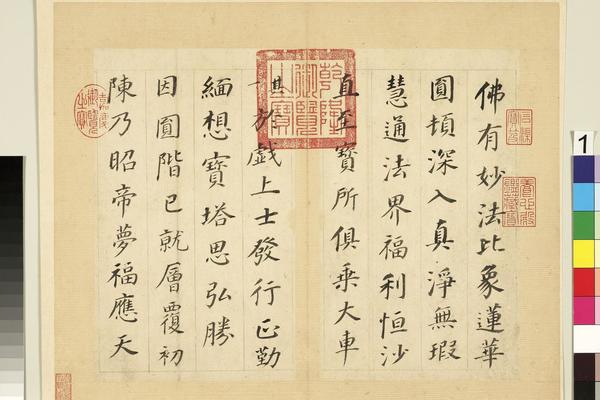 佛有妙法比象蓮華
圓頓深入真淨無瑕
慧通法界福利恒沙
直至寶所俱乘大車
其一於戲上士發行正勤
緬想寶塔思弘勝
因圓階已就層覆初
陳乃昭帝夢福應天
乾隆御覽之寶
嘉慶御覽之寶
養心殿鑒藏寶
1